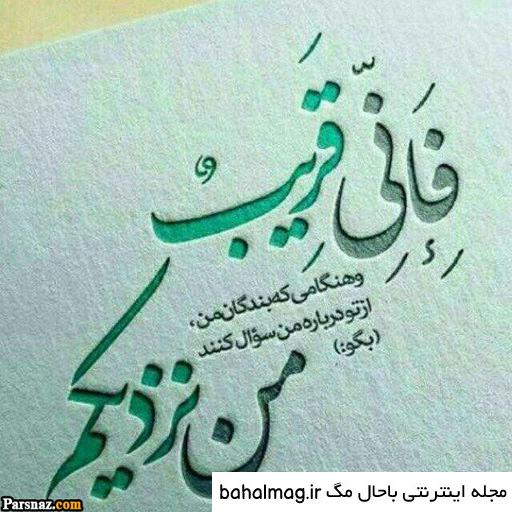 فَإِنِّی قَرِیبٌ
وهنگامی که بندگان من،
از تو درباره من سؤال کنند
(بگو:)
من نزدیکم
مجله اینترنتی باحال مگ bahalmag.ir
Parsnaz.com